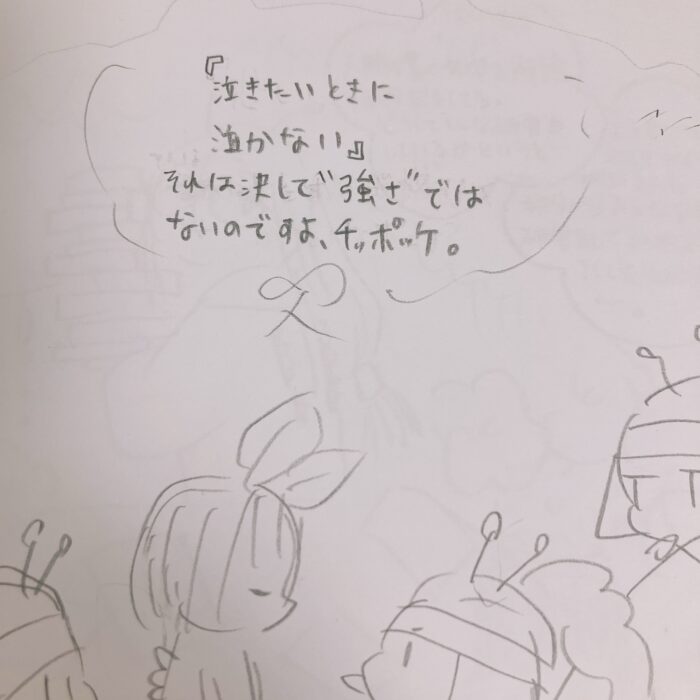 『泣きたいときに
泣かない』
それは決して"強さ"では
ないのですよ、チッポッケ。